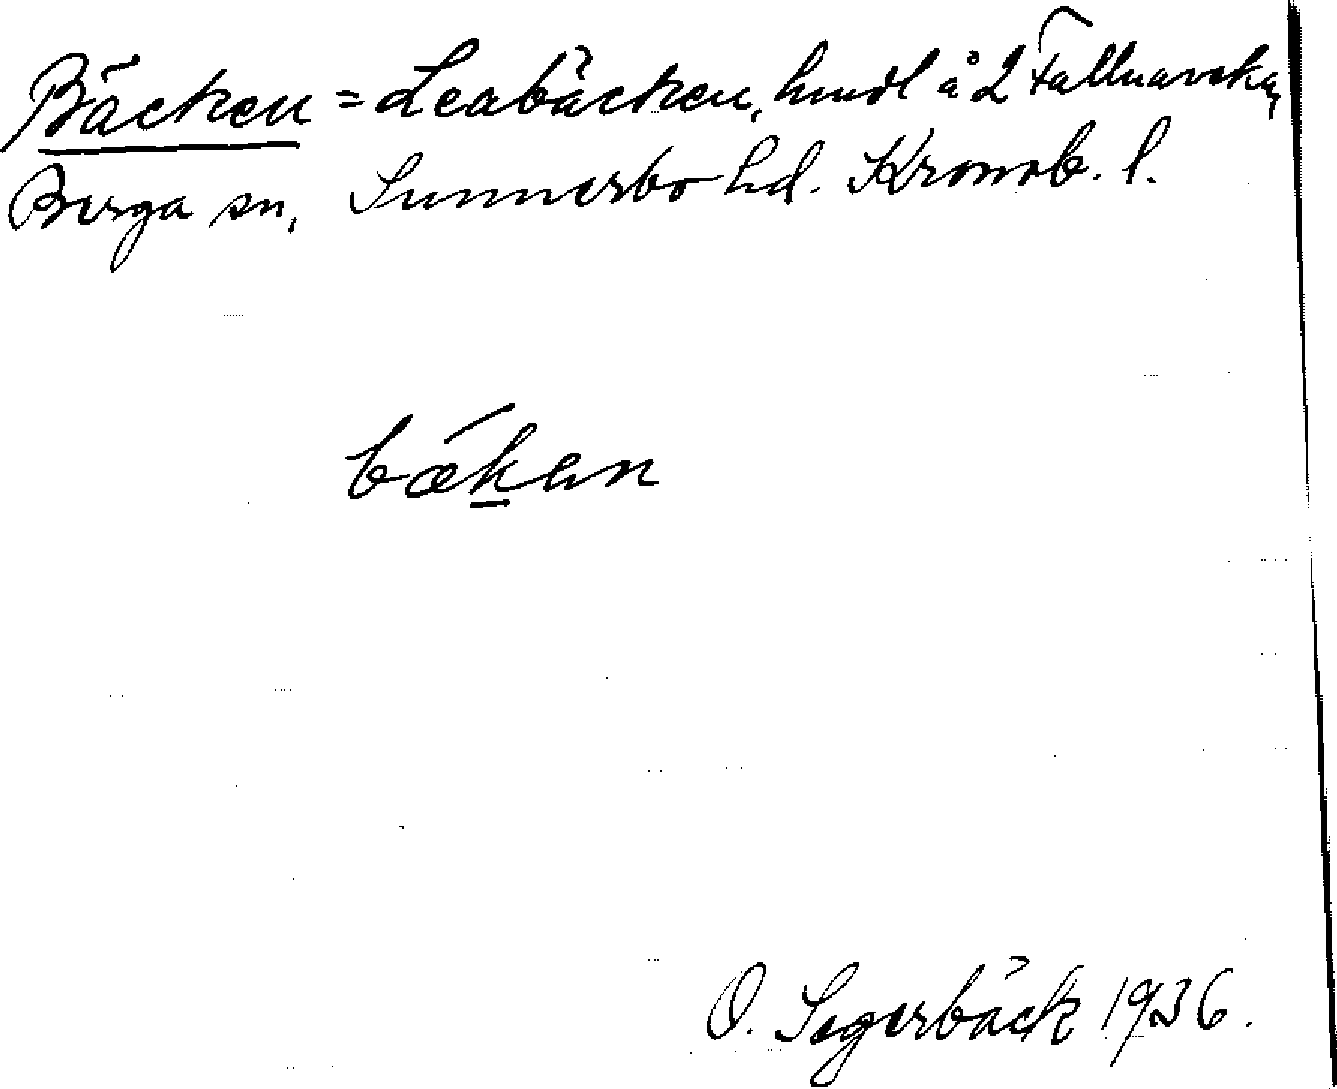 Bäcken = Leabäcken, hmdl å 2 Fallnaveka,
Berga sn, Sunnerbo hd. Kronob. l.
bækən
O. Segerbäck 1936.